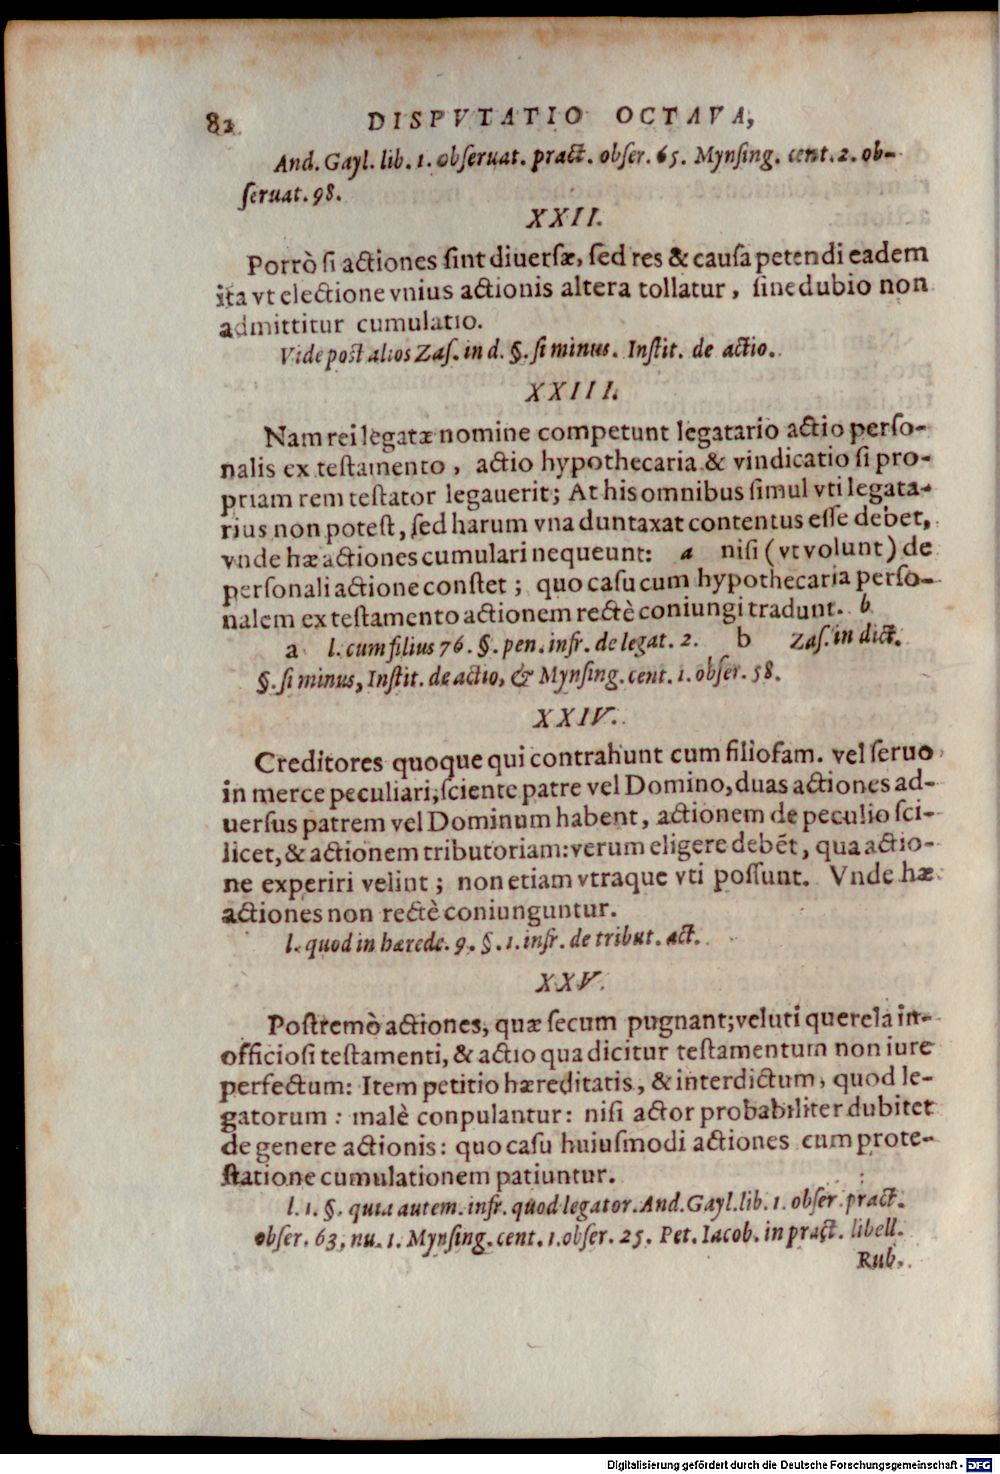 82 DISPVTATIO OCTAVA,
And. Gayl. lib. 1. obſeruat. pract. obſer. 65. Mynſing. cent. 2. ob-
ſeruat. 98.
XXII.
Porrò ſi actiones ſint diuerſæ, ſed res & cauſa petendi eadem
ita vt electione vnius actionis altera tollatur, ſine dubio non
admittitur cumulatio.
Vide poſt alios Zaſ. in d. §. ſi minus. Inſtit. de actio.
XXIII.
Nam rei legatæ nomine competunt legatario actio perſo-
nalis ex teſtamento, actio hypothecaria & vindicatio ſi pro-
priam rem teſtator legauerit; At his omnibus ſimul vti legata-
rius non poteſt, ſed harum vna duntaxat contentus eſſe debet,
vnde hæ actiones cumulari nequeunt: a niſi (vt volunt) de
perſonali actione conſtet; quo caſu cum hypothecaria perſo-
nalem ex teſtamento actionem rectè coniungi tradunt. b
a l. cum filius 76. §. pen. infr. de legat. 2. b Zaſ. in dict.
§. ſi minus, Inſtit. de actio, & Mynſing. cent. 1. obſer. 58.
XXIV.
Creditores quoque qui contrahunt cum filiofam. vel ſeruo
in merce peculiari, ſciente patre vel Domino, duas actiones ad-
uerſus patrem vel Dominum habent, actionem de peculio ſci-
licet, & actionem tributoriam: verum eligere debēt, qua actio-
ne experiri velint; non etiam vtraque vti poſſunt. Vnde hæ
actiones non rectè coniunguntur.
l. quod in hærede. 9. §. 1. infr. de tribut. act.
XXV.
Poſtremò actiones, quæ ſecum pugnant; veluti querela in-
officioſi teſtamenti, & actio qua dicitur teſtamentum non iure
perfectum: Item petitio hæreditatis, & interdictum, quod le-
gatorum: malè conpulantur: niſi actor probabiliter dubitet
de genere actionis: quo caſu huiuſmodi actiones cum prote-
ſtatione cumulationem patiuntur.
l. 1. §. quia autem. infr. quod legator. And. Gayl. lib. 1. obſer. pract.
obſer. 63, nu. 1. Mynſing. cent. 1. obſer. 25. Pet. Iacob. in pract. libell.
Rub.
Digitalisierung gefördert durch die Deutsche Forschungsgemeinschaft - DFG